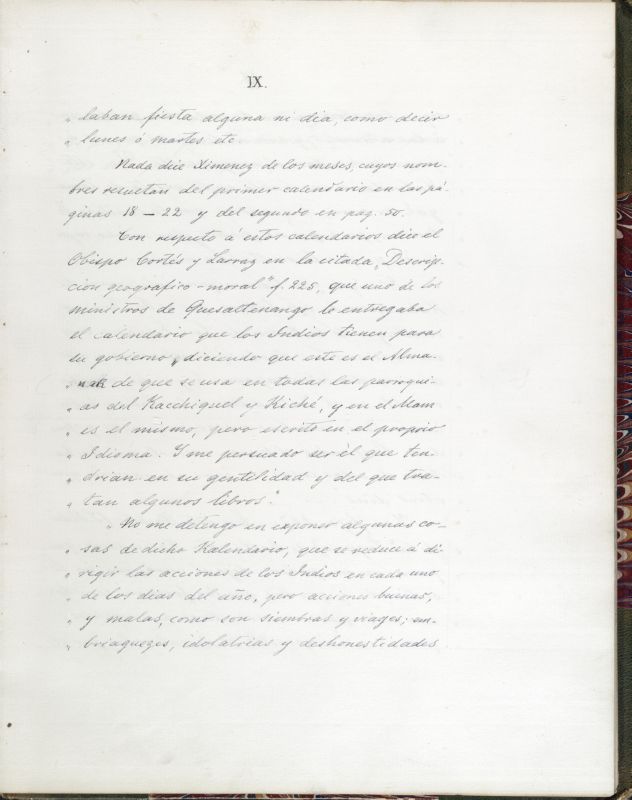 IX.
" laban fiesta alguna ni dia, como decir
" lunes ó martes etc
Nada dice Ximenez de los meses, cuyos nom-
bres resultan del primer calendario en las pá-
ginas 18 — 22 y del segundo en pag. 50.
Con respecto á estos calendarios dice el
Obispo Cortés y Larraz en la citada „Descrip-
cion geografico-moral" f. 225, que uno de los
ministros de Quesaltenango le entregaba
el calendario que los Indios tienen para
su gobierno „diciendo que este es el Alma-
" nak de que se usa en todas las parroqui-
" as del Kacchiquel y Kiché, y en el Mam
" es el mismo, pero escrito en el proprio
" Idioma. Y me persuado ser él que ten-
" drian en su gentilidad y del que tra-
" tan algunos libros".
„No me detengo en exponer algunas co-
" sas de dicho Kalendario, que se reduce á di-
" rigir las acciones de los Indios en cada uno
" de los dias del año, pero acciones buenas,
" y malas, como son siembras y viages; em-
" briaguezes, idolatrias y deshonestidades